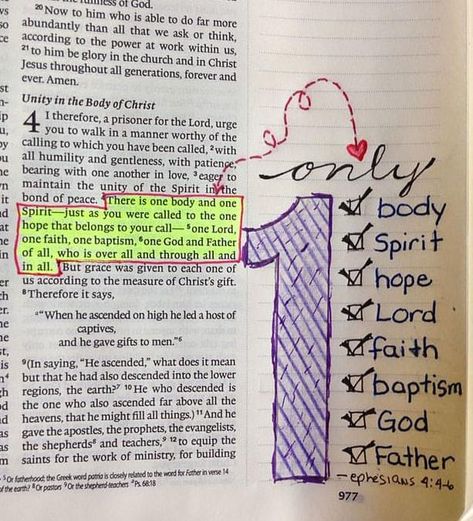 fullness of God.
20 Now to him who is able to do far more
abundantly than all that we ask or think,
according to the power at work within us,
21 to him be glory in the church and in Christ
Jesus throughout all generations, forever and
ever. Amen.
Unity in the Body of Christ
4 I therefore, a prisoner for the Lord, urge
you to walk in a manner worthy of the
calling to which you have been called, 2 with
all humility and gentleness, with patience,
bearing with one another in love, 3 eager to
maintain the unity of the Spirit in the
bond of peace. 4 There is one body and one
Spirit—just as you were called to the one
hope that belongs to your call— 5 one Lord,
one faith, one baptism, 6 one God and Father
of all, who is over all and through all and
in all. 7 But grace was given to each one of
us according to the measure of Christ's gift.
8 Therefore it says,
"When he ascended on high he led a host of
captives,
and he gave gifts to men."
9 (In saying, "He ascended," what does it mean
but that he had also descended into the lower
regions, the earth? 10 He who descended is
the one who also ascended far above all the
heavens, that he might fill all things.) 11 And he
gave the apostles, the prophets, the evangelists,
the shepherds and teachers, 12 to equip the
saints for the work of ministry, for building
5 Or fatherhood; the Greek word patria is closely related to the word for Father in verse 14
of the earth? 8 Or pastors 9 Or the shepherd-teachers Ps. 68:18
only
1
body
Spirit
hope
Lord
faith
baptism
God
Father
-ephesians 4:4-6
977